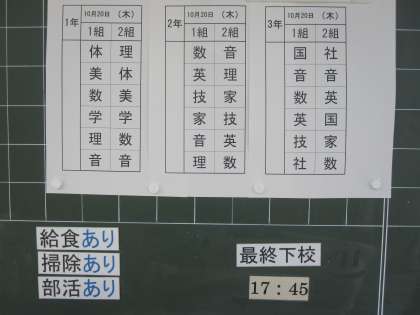 1年 10月20日 (木)
1組 2組
体 理
美 体
数 美
学 学
理 数
音 音
2年 10月20日 (木)
1組 2組
数 音
英 理
技 家
家 技
音 英
理 数
3年 10月20日 (木)
1組 2組
国 社
音 音
数 英
英 国
技 家
社 数
給食あり
掃除あり
部活あり
最終下校
17:45